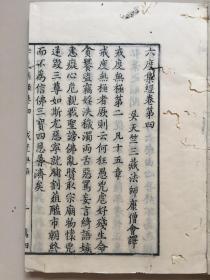 六度集經卷第四
吳天竺三藏法師康僧會譯
戒度無極第二 凡十五章
戒度無極者厥則云何狂愚凶虐好殘生命
貪饕盜竊婬泆穢濁兩舌惡罵妄言綺語嫉
恚癡心危親戮聖謗佛亂賢取宗廟物懷兇
逆毀三尊如斯尤惡寧就脯割菹醢市朝終
而不為信佛三寶四恩普濟矣